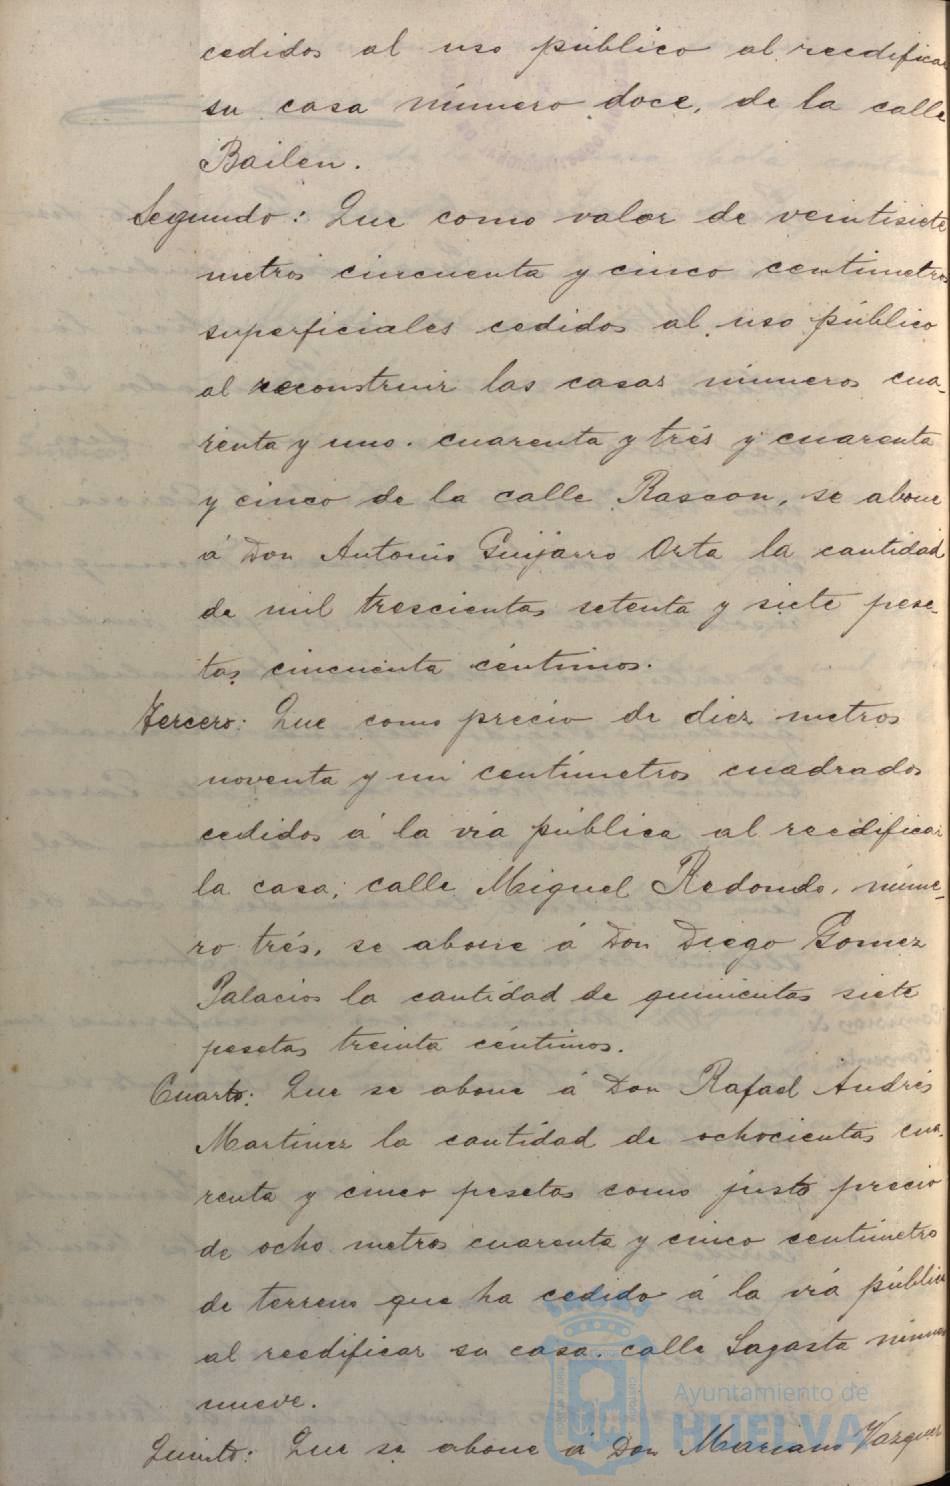 cedidos al uso público al reedificar
su casa número doce, de la calle
Bailen.
Segundo: Que como valor de veintisiete
metros cincuenta y cinco centimetros
superficiales cedidos al uso público
al reconstruir las casas números cua-
renta y uno. cuarenta y trés y cuarenta
y cinco de la calle Rascon, se abone
á Don Antonio Guijarro Orta la cantidad
de mil trescientas setenta y siete pese-
tas cincuenta céntimos.
Tercero: Que como precio de diez metros
noventa y un centímetros cuadrados
cedidos á la via pública al reedificar
la casa, calle Miguel Redondo, núme-
ro trés, se abone á Don Diego Gomez
Palacios la cantidad de quinientas siete
pesetas treinta céntimos.
Cuarto: Que se abone á Don Rafael Andrés
Martinez la cantidad de ochocientas cua-
renta y cinco pesetas como justo precio
de ocho metros cuarenta y cinco centímetro
de terreno que ha cedido á la via pública
al reedificar su casa. calle Sagasta número
nueve.
Quinto: Que se abone á Don Mariano Vazquez
Ayuntamiento de
HUELVA